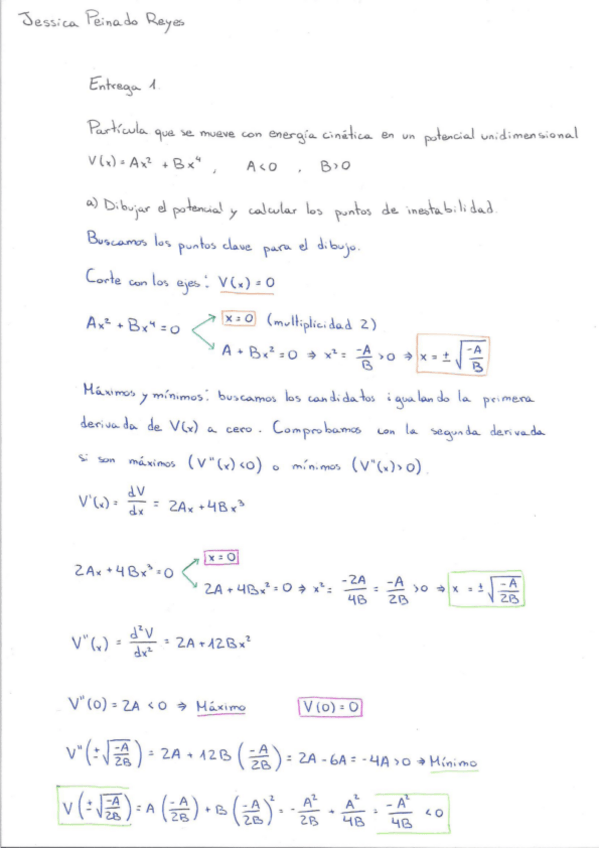 Jessica Peinado Reyes
Entrega 1.
Partícula que se mueve con energía cinética en un potencial unidimensional
V(x) = Ax² + Bx⁴ , A<0 , B>0
a) Dibujar el potencial y calcular los puntos de inestabilidad.
Buscamos los puntos clave para el dibujo.
Corte con los ejes: V(x) = 0
Ax² + Bx⁴ = 0
x = 0 (multiplicidad 2)
A + Bx² = 0 ⇒ x² = -A/B > 0 ⇒ x = ± √(-A/B)
Máximos y mínimos: buscamos los candidatos igualando la primera
derivada de V(x) a cero. Comprobamos con la segunda derivada
si son máximos (V''(x)<0) o mínimos (V''(x)>0).
V'(x) = dV/dx = 2Ax + 4Bx³
2Ax + 4Bx³ = 0
x = 0
2A + 4Bx² = 0 ⇒ x² = -2A/4B = -A/2B > 0 ⇒ x = ± √(-A/2B)
V''(x) = d²V/dx² = 2A + 12Bx²
V''(0) = 2A < 0 ⇒ Máximo V(0) = 0
V''(±√(-A/2B)) = 2A + 12B (-A/2B) = 2A - 6A = -4A > 0 ⇒ Mínimo
V(±√(-A/2B)) = A (-A/2B) + B (-A/2B)² = -A²/2B + A²/4B = -A²/4B < 0